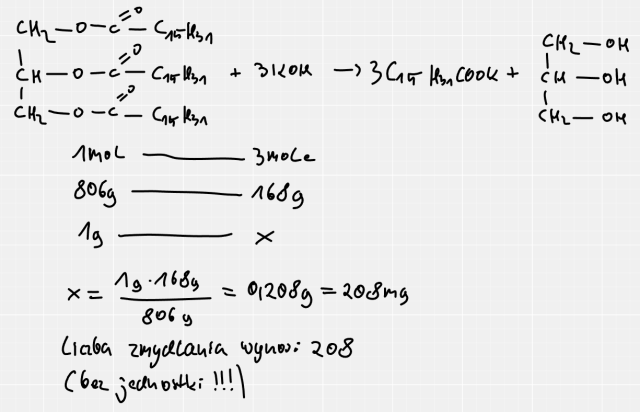 CH₂—O—C(=O)—C₁₅H₃₁ CH₂—OH
CH—O—C(=O)—C₁₅H₃₁ + 3KOH → 3C₁₅H₃₁COOK + CH—OH
CH₂—O—C(=O)—C₁₅H₃₁ CH₂—OH
1mol — 3mole
806g — 168g
1g — x
x = 1g · 168g / 806g = 0,1208g = 208mg
Liczba zmydlania wynosi 208
(bez jednostki !!!)